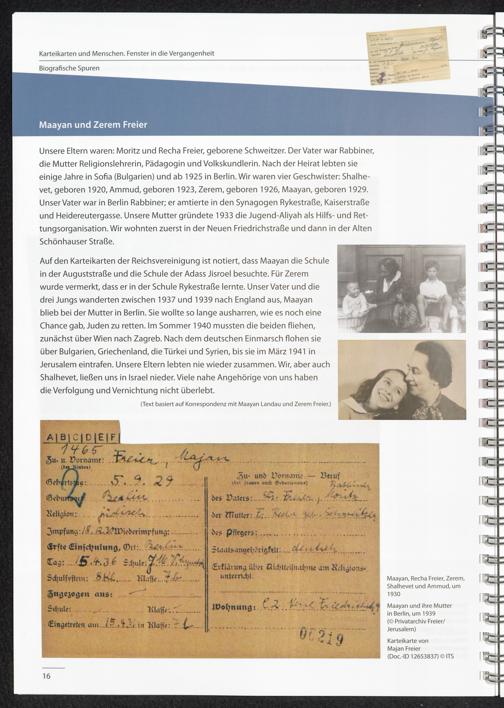 Karteikarten und Menschen. Fenster in die Vergangenheit
Biografische Spuren
Maayan und Zerem Freier
Unsere Eltern waren: Moritz und Recha Freier, geborene Schweitzer. Der Vater war Rabbiner,
die Mutter Religionslehrerin, Pädagogin und Volkskundlerin. Nach der Heirat lebten sie
einige Jahre in Sofia (Bulgarien) und ab 1925 in Berlin. Wir waren vier Geschwister: Shalhe-
vet, geboren 1920, Ammud, geboren 1923, Zerem, geboren 1926, Maayan, geboren 1929.
Unser Vater war in Berlin Rabbiner; er amtierte in den Synagogen Rykestraße, Kaiserstraße
und Heidereutergasse. Unsere Mutter gründete 1933 die Jugend-Aliyah als Hilfs- und Ret-
tungsorganisation. Wir wohnten zuerst in der Neuen Friedrichstraße und dann in der Alten
Schönhauser Straße.
Auf den Karteikarten der Reichsvereinigung ist notiert, dass Maayan die Schule
in der Auguststraße und die Schule der Adass Jisroel besuchte. Für Zerem
wurde vermerkt, dass er in der Schule Rykestraße lernte. Unser Vater und die
drei Jungs wanderten zwischen 1937 und 1939 nach England aus, Maayan
blieb bei der Mutter in Berlin. Sie wollte so lange ausharren, wie es noch eine
Chance gab, Juden zu retten. Im Sommer 1940 mussten die beiden fliehen,
zunächst über Wien nach Zagreb. Nach dem deutschen Einmarsch flohen sie
über Bulgarien, Griechenland, die Türkei und Syrien, bis sie im März 1941 in
Jerusalem eintrafen. Unsere Eltern lebten nie wieder zusammen. Wir, aber auch
Shalhevet, ließen uns in Israel nieder. Viele nahe Angehörige von uns haben
die Verfolgung und Vernichtung nicht überlebt.
(Text basiert auf Korrespondenz mit Maayan Landau und Zerem Freier.)
A|B|C|D|E|F|
1465
Zu- u. Vorname: Freier, Majan
Geburtstag: 5. 9. 29
Geburtsort: Berlin
Religion: jüdisch
Impfung: Wiederimpfung:
Erste Einschulung, Ort: Berlin
Tag: 15.4.36 Schule:
Schulfesten: Klasse 7b
Zugezogen aus:
Schule: Klasse:
Eingetreten am in Klasse:
Zu- und Vorname — Beruf
Rabbiner
des Vaters: Dr. Freier, Moritz
der Mutter: F. Recha geb. Schweitzer
des Pflegers:
Staatsangehörigkeit: deutsch
Erklärung über Nichtteilnahme am Religions-
unterricht:
Wohnung: C 2, Neue Friedrichstr.
06219
Maayan, Recha Freier, Zerem,
Shalhevet und Ammud, um
1930
Maayan und ihre Mutter
in Berlin, um 1939
(© Privatarchiv Freier/
Jerusalem)
Karteikarte von
Majan Freier
(Doc.-ID 12653837) © ITS
16